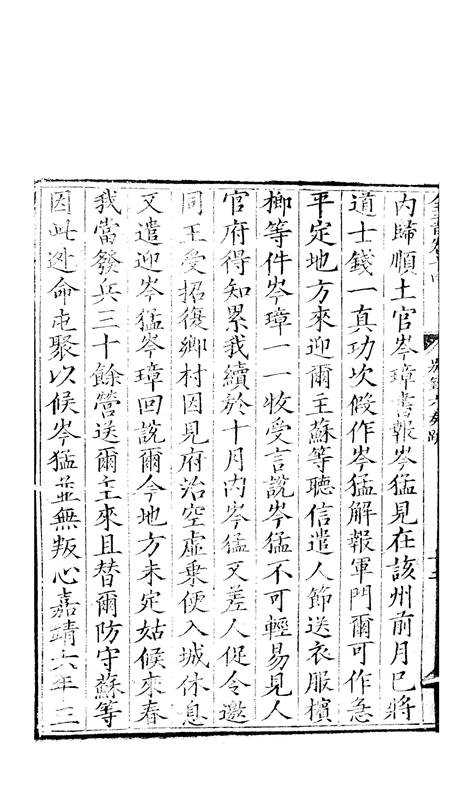 內歸順土官岑璋書報岑猛見在該州前月已將
道士錢一真功次假作岑猛解報軍門爾可作急
平定地方來迎爾主蘇等聽信遣人節送衣服檳
榔等件岑璋一一收受言說岑猛不可輕易見人
官府得知累我續於十月內岑猛又差人促令邀
同王受招復鄉村因見府治空虛乗便入城休息
又遣迎岑猛岑璋回說爾今地方未定姑候來春
我當發兵三十餘營送爾主來且替爾防守蘇等
因此逃命屯聚以候岑猛並無叛心嘉靖六年三